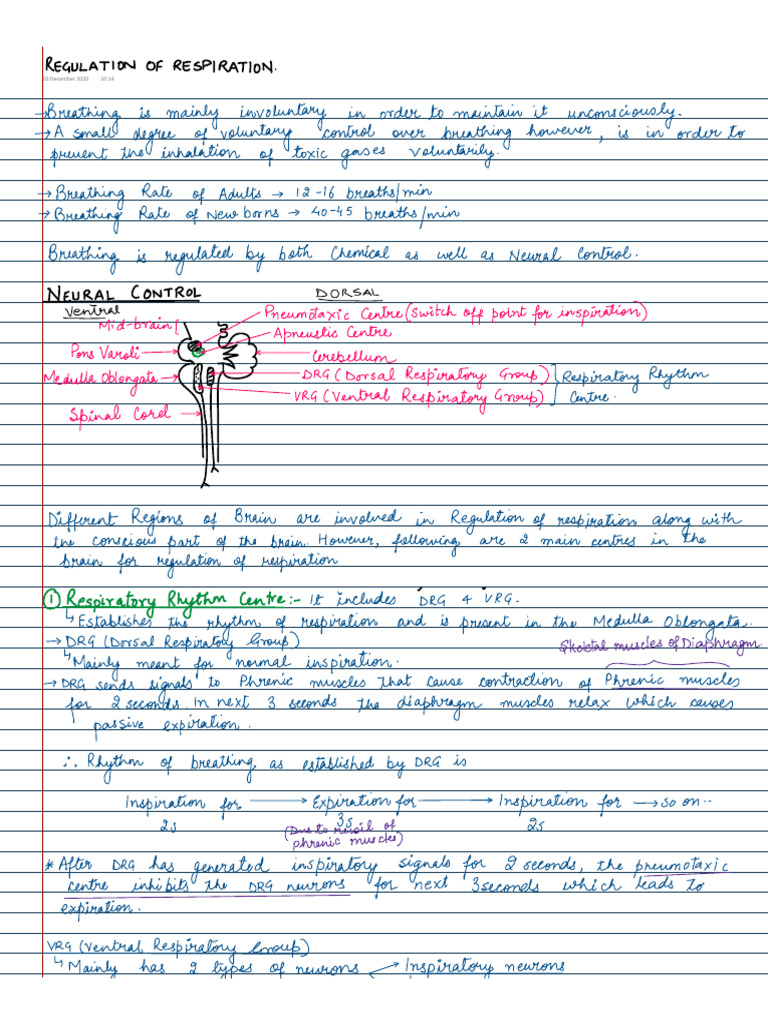 REGULATION OF RESPIRATION.
03 December 2020 10:14
→Breathing is mainly involuntary in order to maintain it unconsciously.
→A small degree of voluntary control over breathing however, is in order to
prevent the inhalation of toxic gases voluntarily.
→Breathing Rate of Adults → 12-16 breaths/min
→Breathing Rate of New borns → 40-45 breaths/min
Breathing is regulated by both Chemical as well as Neural Control.
NEURAL CONTROL
DORSAL
Ventral
Pneumotaxic Centre (Switch off point for inspiration)
Mid-brain
Apneustic Centre
Pons Varoli
Cerebellum
Medulla Oblongata
DRG (Dorsal Respiratory Group)
Respiratory Rhythm
VRG (Ventral Respiratory Group)
Centre.
Spinal Cord
Different Regions of Brain are involved in Regulation of respiration along with
the conscious part of the brain. However, following are 2 main centres in the
brain for regulation of respiration
① Respiratory Rhythm Centre:- It includes DRG & VRG.
↳Establishes the rhythm of respiration and is present in the Medulla Oblongata.
→ DRG (Dorsal Respiratory Group)
Skeletal muscles of Diaphragm
↳Mainly meant for normal inspiration.
→ DRG sends signals to Phrenic muscles that cause contraction of Phrenic muscles
for 2 seconds. In next 3 seconds the diaphragm muscles relax which causes
passive expiration.
∴ Rhythm of breathing as established by DRG is
Inspiration for → Expiration for → Inspiration for → so on..
2s 3s 2s
(Due to recoil of
phrenic muscles)
* After DRG has generated inspiratory signals for 2 seconds, the pneumotaxic
centre inhibits the DRG neurons for next 3 seconds which leads to
expiration.
VRG (Ventral Respiratory Group)
↳ Mainly has 2 types of neurons → Inspiratory neurons